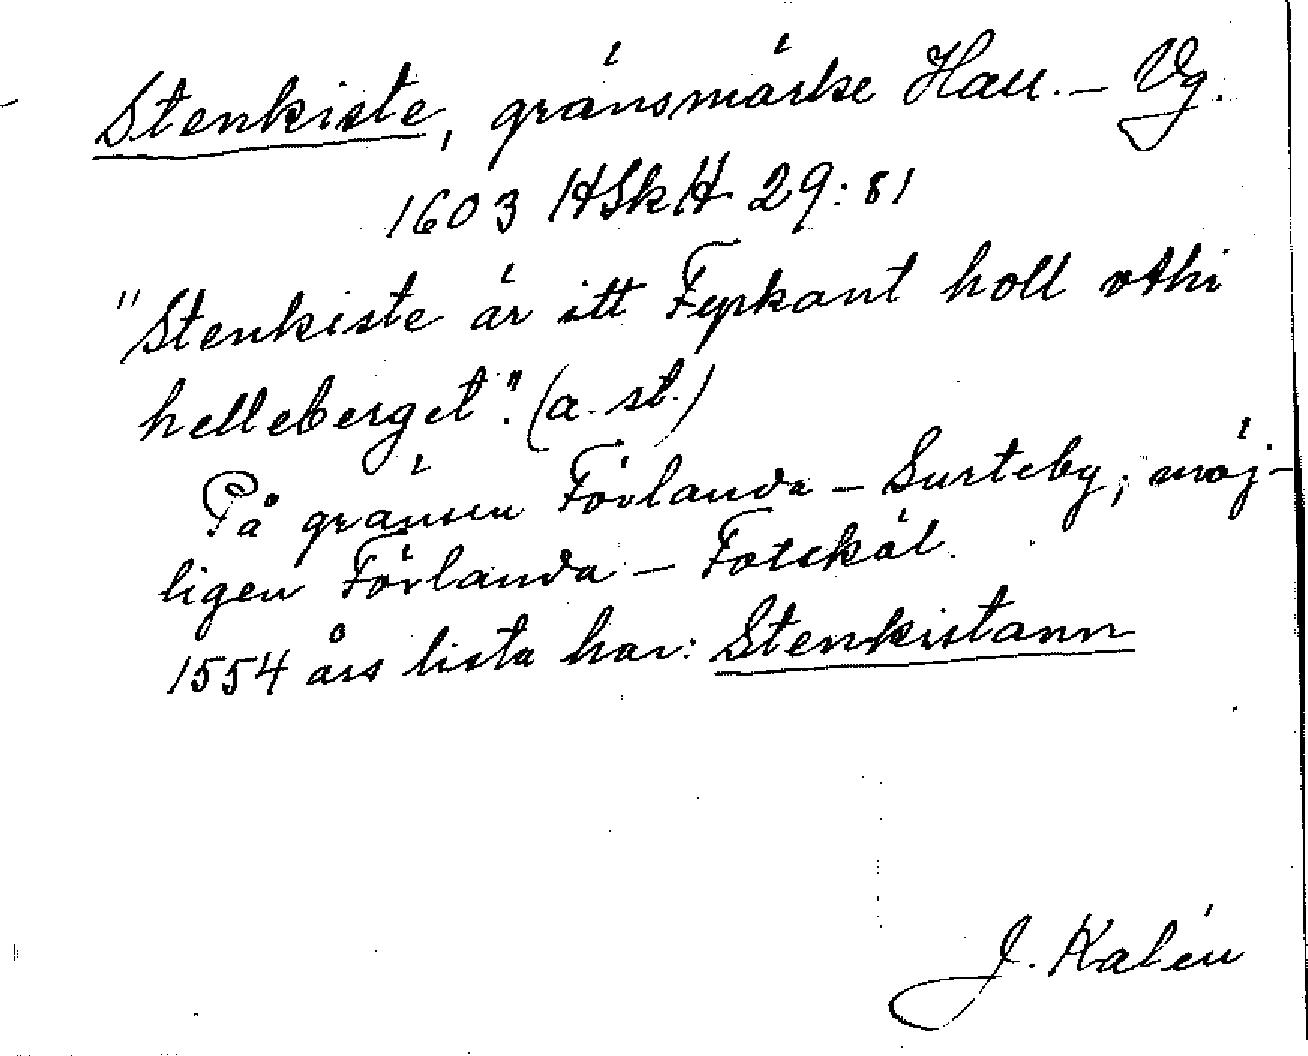 Stenkiste, gränsmärke Hall. – Vg.
1603 HSkH 29:81
"Stenkiste är itt Fyrkant holl vthi
helleberget". (a. st.)
På gränsen Förlanda – Surteby, möj-
ligen Förlanda – Fotskäl.
1554 års lista har: Stenkistann
J. Kalén